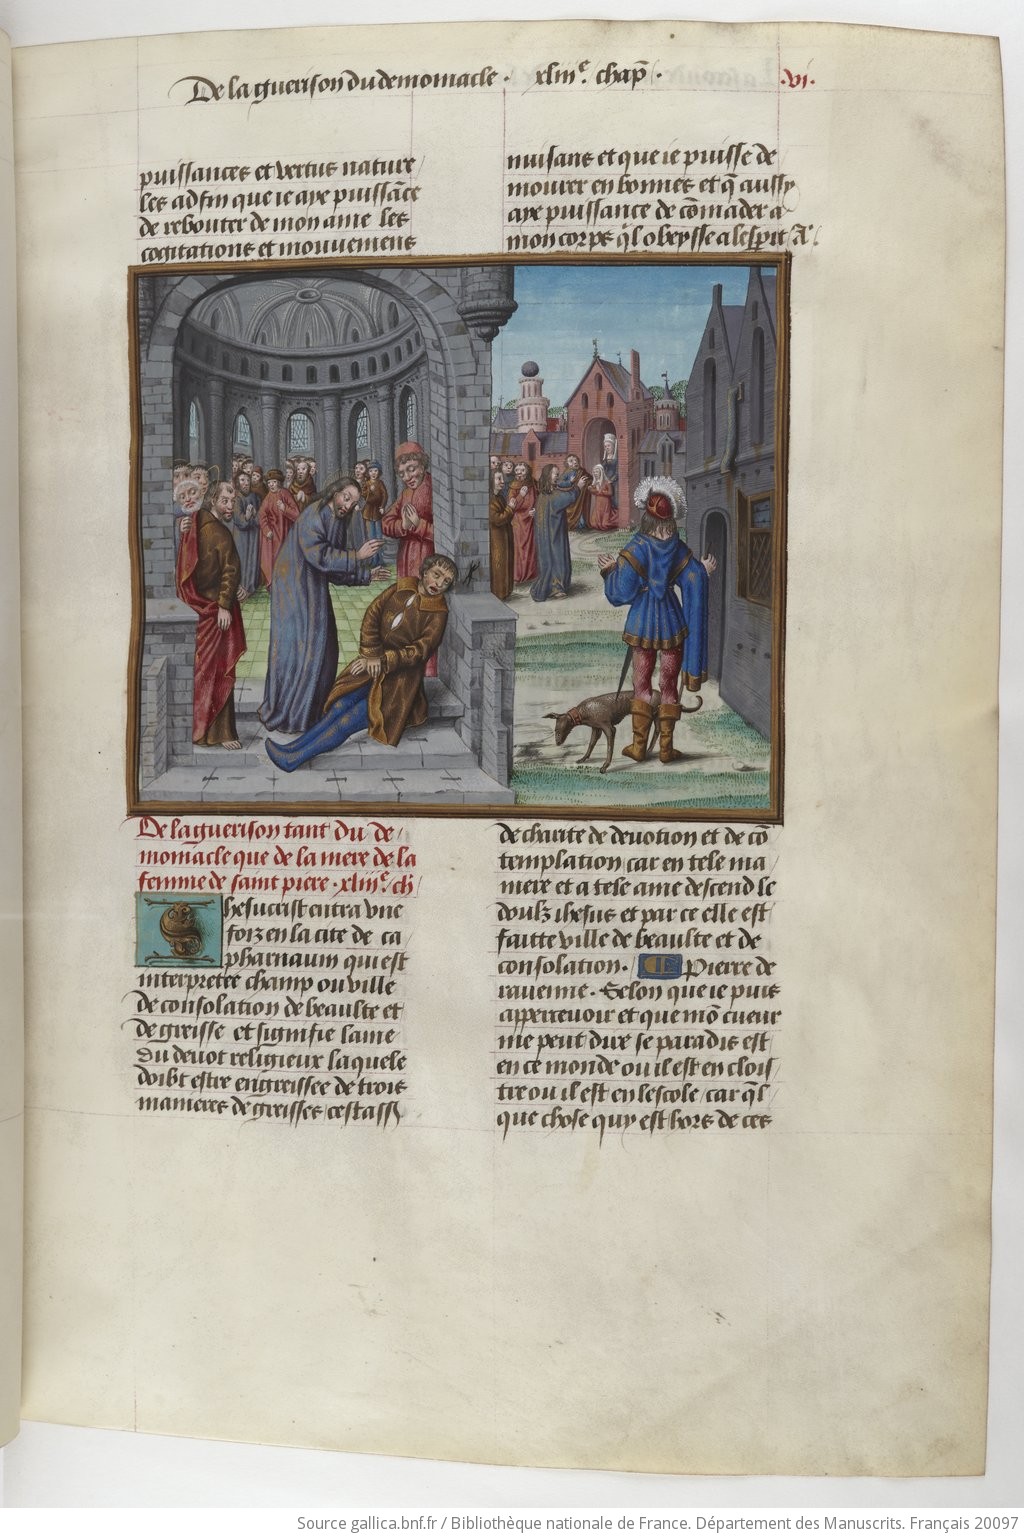 De la guerison du demoniacle · xliiiᵉ. chap̄ ·
·vi·
puissances et vertus nature/
les ad fin que ie aye puissāce
de rebouter de mon ame les
cogitations et mouvemens
nuisans et que ie puisse de
mourer en bonnes et q̄ aussy
aye puissance de cōmāder a
mon corps q̄l obeysse a lesp̄it Aͬ
De la guerison tant du de/
moniacle que de la mere de la
femme de saint piere · xliiiᵉ. ch̄
Ihesucrist entra vne
foiz en la cite de ca
pharnaum qui est
interpretee champ ou ville
de consolation de beaulte et
de gresse et signifie lame
du devot religieux laquele
doibt estre engressee de trois
manieres de gresses / cestass̄
de charite de devotion et de cō
templation / car en tele ma/
niere et a tele ame descend le
doulz ihesus et par ce elle est
faitte ville de beaulte et de
consolation. Pierre de
ravenne. Selon que ie puis
appercevoir et que mō cueur
me peut dire se paradis est
en ce monde ou il est en clois/
tre ou il est en lescole / car q̄l
que chose quy est hors de ces
Source gallica.bnf.fr / Bibliothèque nationale de France. Département des Manuscrits. Français 20097